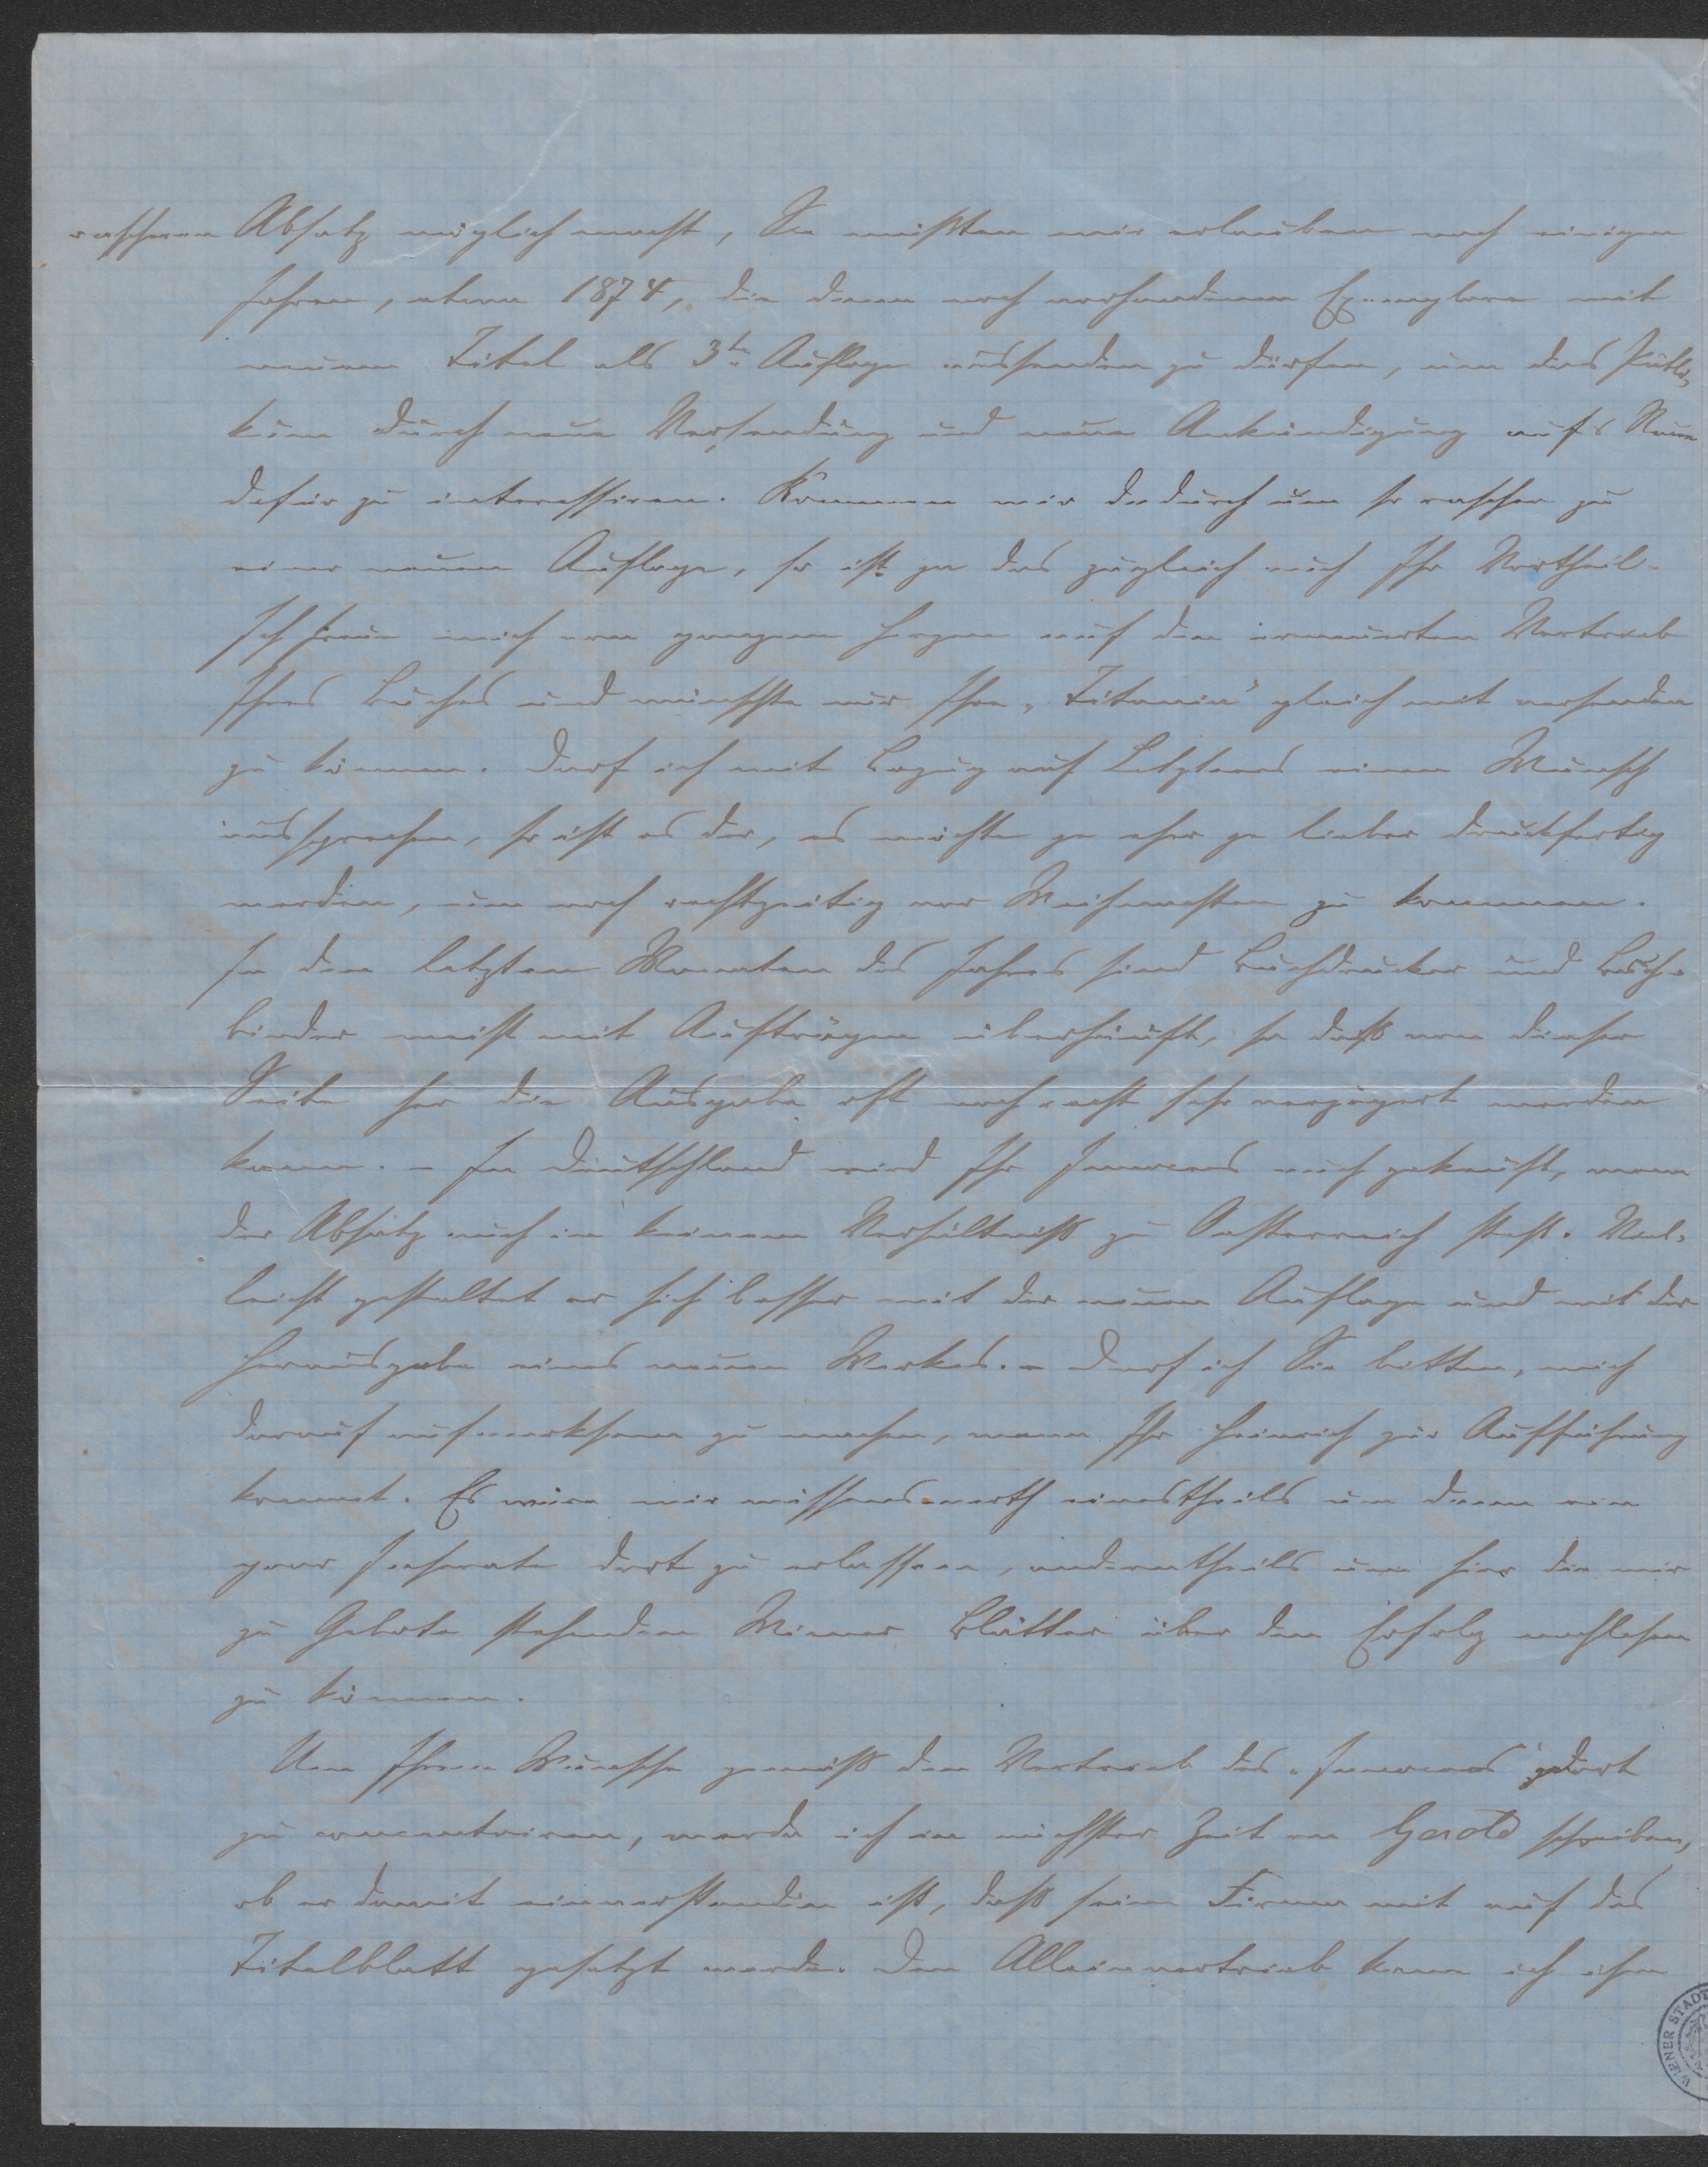 rascheren Absatz möglich macht, Sie müßten mir erlauben nach einigen
Jahren, etwa 1874, die dann noch vorhandenen Exemplare mit
neuem Titel als 3te Auflage aussenden zu dürfen, um das Publi-
kum durch neue Versendung und neue Ankündigung aufs Neue
dafür zu interessiren. Kommen wir dadurch um so rascher zu
einer neuen Auflage, so ist ja das zugleich auch Ihr Vortheil.
Ich freue mich von ganzem Herzen auf den erneuerten Vertrieb
Ihres Buches und wünschte nur Ihre „Titanin" gleich mit versenden
zu können. Darf ich mit Bezug auf Letzteres einen Wunsch
aussprechen, so ist es der, es möchte je eher je lieber druckfertig
werden, um noch rechtzeitig vor Weihnachten zu kommen.
In den letzten Monaten des Jahres sind Buchdrucker und Buch-
binder meist mit Aufträgen überhäuft, so daß von dieser
Seite her die Ausgabe oft noch recht sehr verzögert werden
kann. – In Deutschland wird Ihr Immerens auch gekauft, wenn
der Absatz auch in keinem Verhältniß zu Oesterreich steht. Viel-
leicht gestaltet er sich besser mit der neuen Auflage und mit der
Herausgabe eines neuen Werkes. – Darf ich Sie bitten, mich
darauf aufmerksam zu machen, wann Ihr Heinrich zur Aufführung
kommt. Es wäre mir wissenswerth einestheils um dann ein
paar Inserate dort zu erlassen, anderntheils um hier die mir
zu Gebote stehenden Wiener Blätter über den Erfolg nachlesen
zu können.
Um Ihrem Wunsche gemäß den Vertrieb des „ dort
zu concentriren, werde ich in nächster Zeit an Gerold schreiben,
ob er damit einverstanden ist, daß seine Firma mit auf das
Titelblatt gesetzt werde. Den Alleinvertrieb kann ich ihm
WIENER STADT